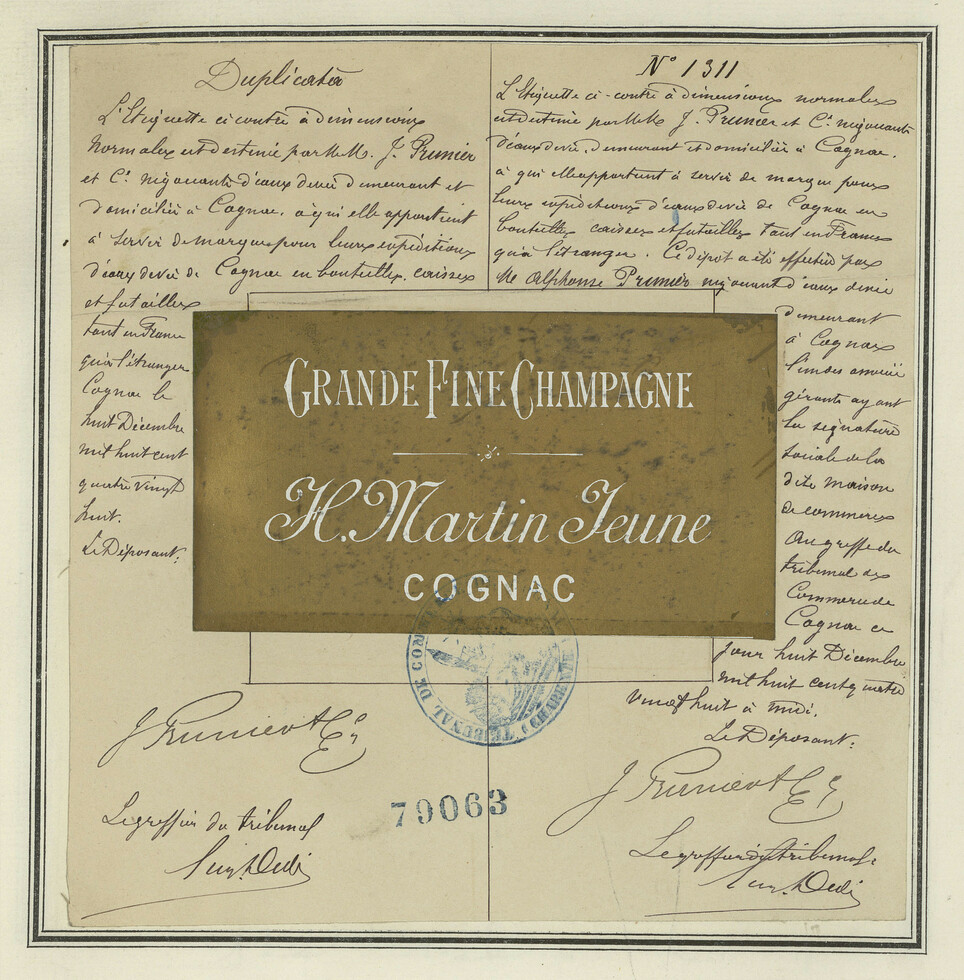 Duplicata
L'Etiquette ci contre à dimensions
normales est destinée par MM. J. Prunier
et Cie négociants d'eaux de vie demeurant et
domiciliés à Cognac, à qui elle appartient
à servir de marque pour leurs expéditions
d'eaux de vie de Cognac en bouteilles, caisses
et futailles
tant en France
qu'à l'étranger
Cognac le
huit Décembre
mil huit cent
quatre vingt
huit.
Le Déposant:
J Prunier & Cie
Le greffier du tribunal
No 1311
L'Etiquette ci-contre à dimensions normales
est destinée par MM. J. Prunier et Cie négociants
d'eaux de vie, demeurant et domiciliés à Cognac.
à qui elle appartient à servir de marque pour
leurs expéditions d'eaux de vie de Cognac en
bouteilles caisses et futailles tant en France
qu'à l'étranger. Ce dépôt a été effectué par
Mr Alphonse Prunier négociant d'eaux de vie
demeurant
à Cognac
l'un des associés
gérants ayant
la signature
sociale de la
dite maison
de commerce
au greffe du
tribunal de
Commerce de
Cognac ce
jour huit Décembre
mil huit cent quatre
vingt huit à midi.
Le Déposant:
J Prunier & Cie
Le greffier du tribunal:
GRANDE FINE CHAMPAGNE
H. Martin Jeune
COGNAC
TRIBUNAL DE COM
CHARENTE
79063